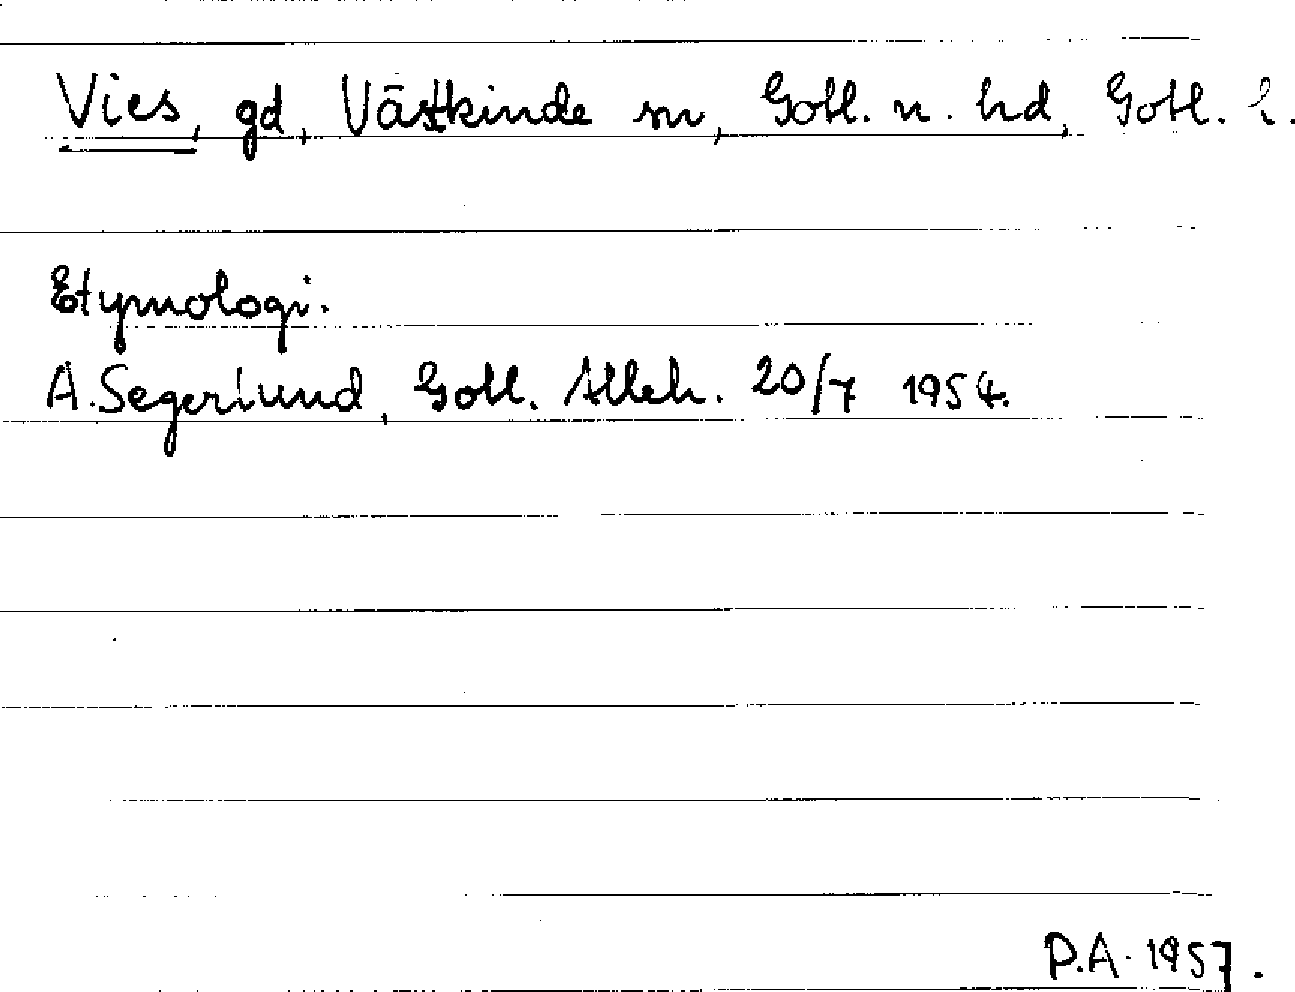 Vies, gd, Västkinde sn, Gotl. n. hd, Gotl. l.
Etymologi.
A. Segerlund, Gotl. Alleh. 20/7 1954.
P.A. 1957.